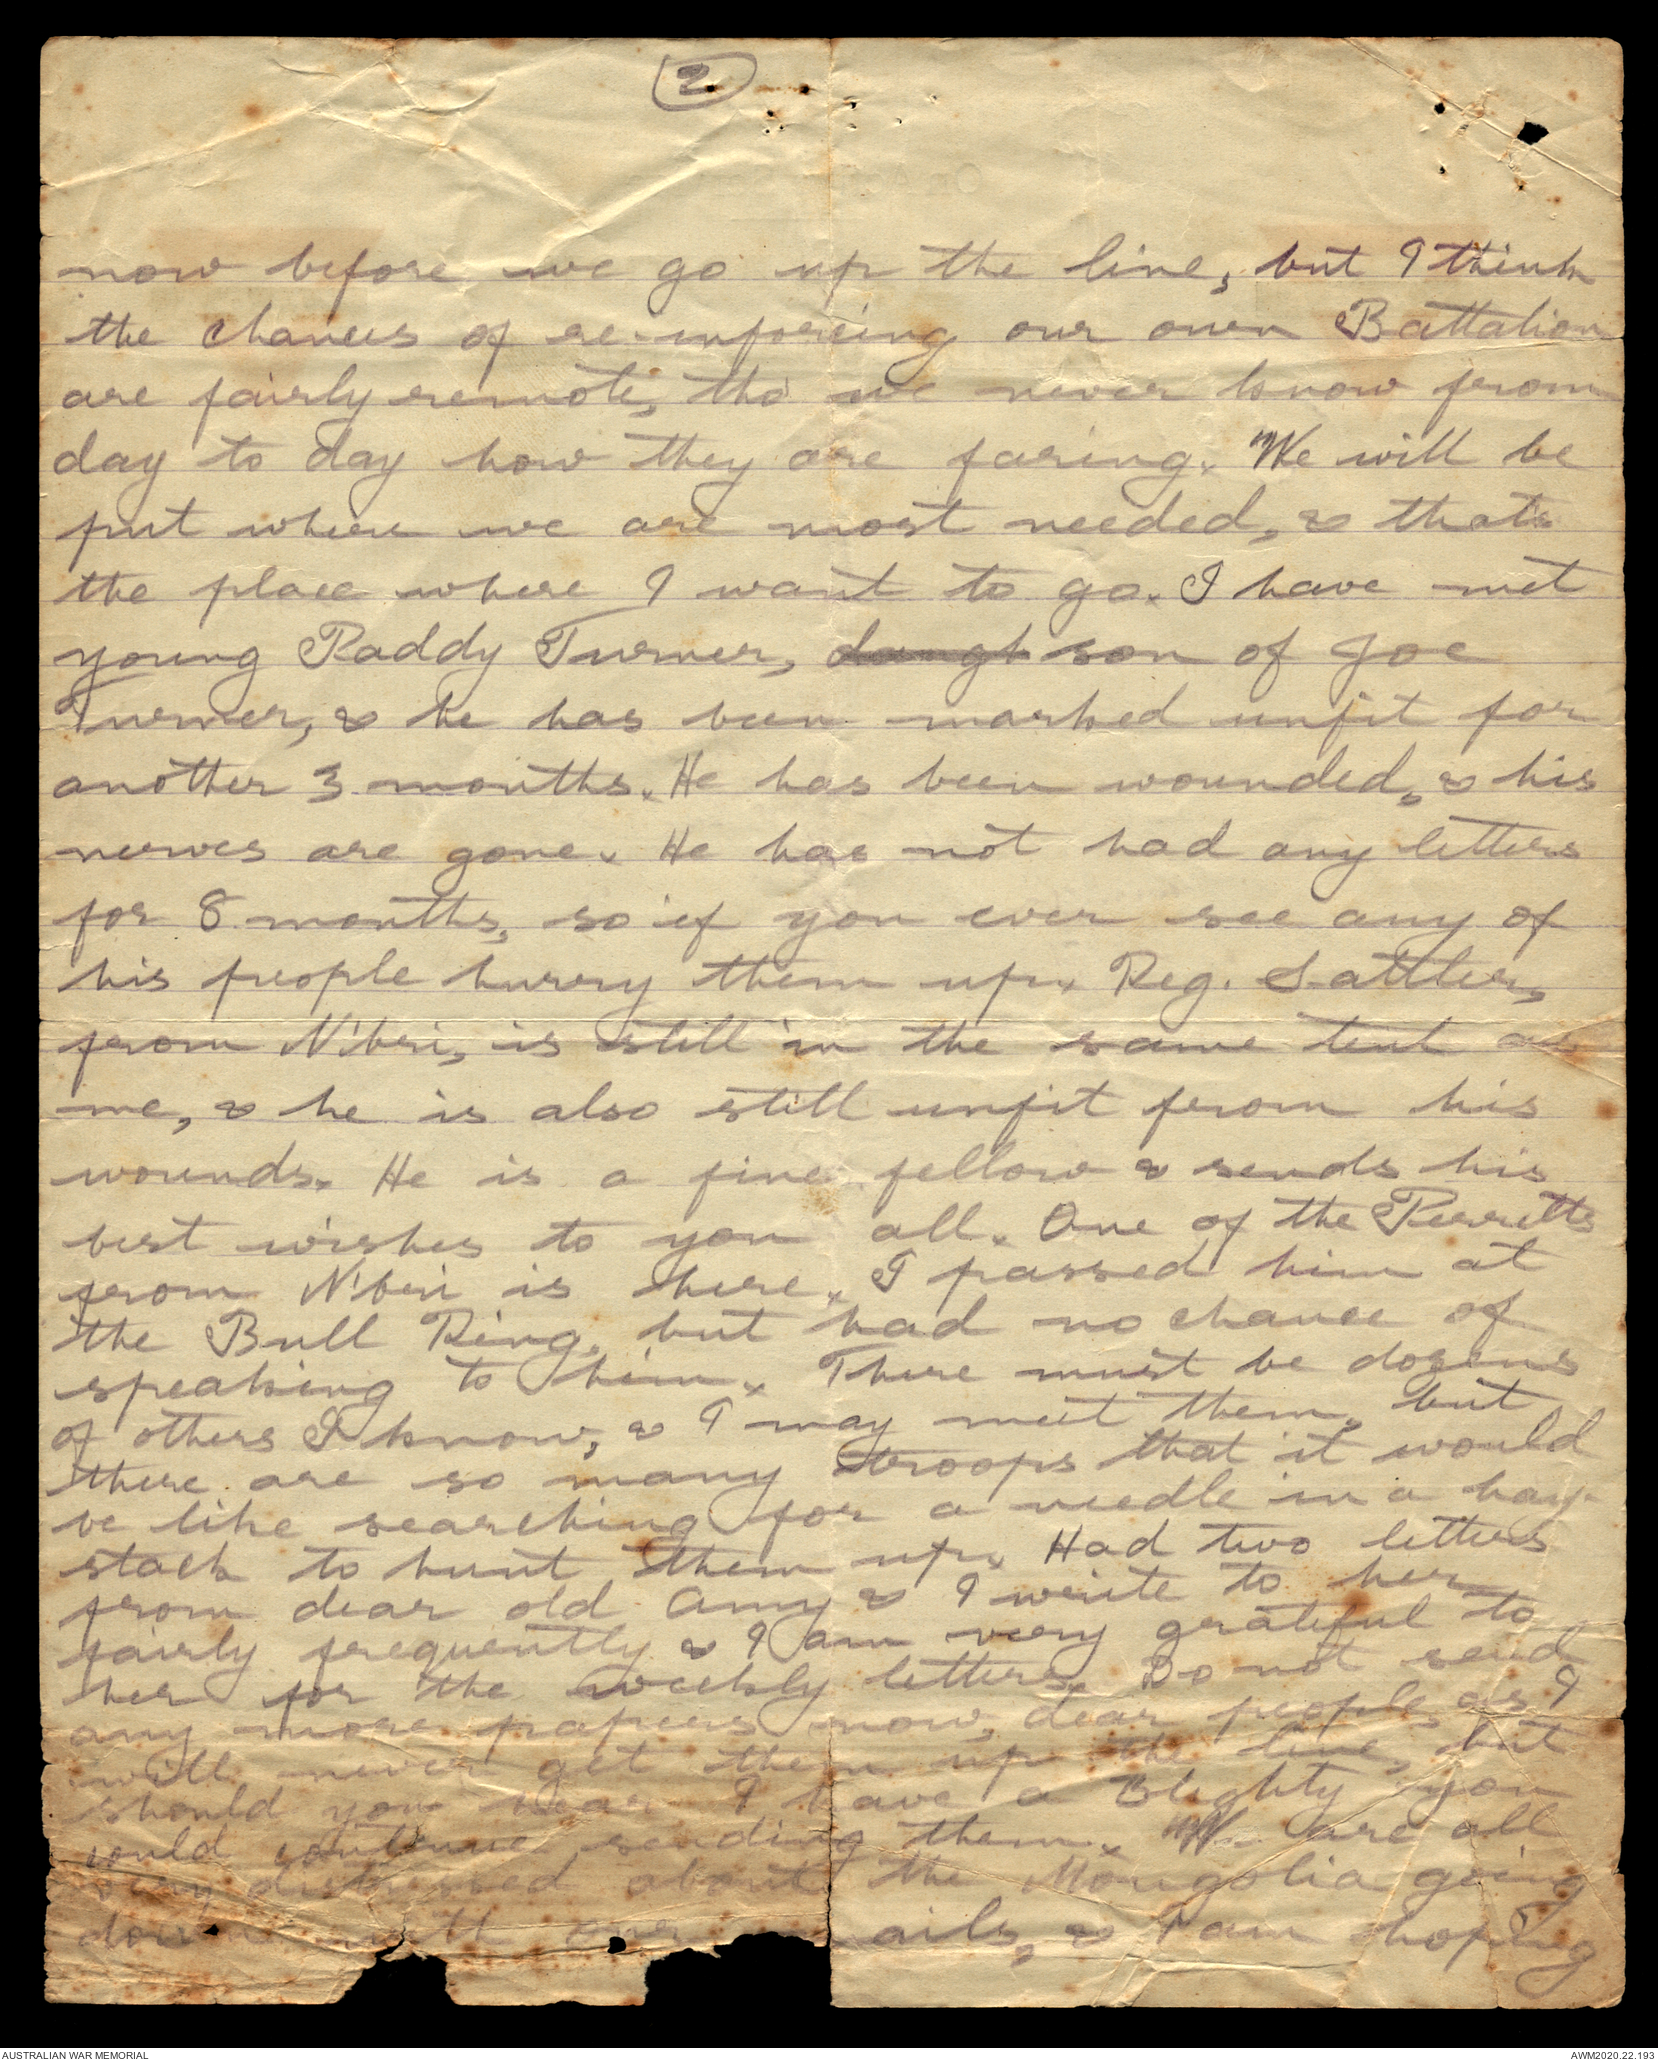 2
now before we go up the line, but I think
the chances of re-inforcing our own Battalion
are fairly remote, tho' we never know from
day to day how they are faring. We will be
put where we are most needed, & thats
the place where I want to go. I have met
young Paddy Turner, daugh son of Joe
Turner, & he has been marked unfit for
another 3 months. He has been wounded, & his
nerves are gone. He has not had any letters
for 8 months, so if you ever see any of
his people hurry them up. Reg. Sattler,
from N'bri, is still in the same tent as
me, & he is also still unfit from his
wounds. He is a fine fellow & sends his
best wishes to you all. One of the Perretts
from N'bri is here. I passed him at
the Bull Ring, but had no chance of
speaking to him. There must be dozens
of others I know, & I may meet them, but
there are so many troops that it would
be like searching for a needle in a hay-
stack to hunt them up. Had two letters
from dear old Amy & I write to her
fairly frequently & I am very grateful to
her for the weekly letters. Do not send
any more papers now, dear people, as I
will never get them up the line, but
should you hear I have a Blighty you
could continue sending them. We are all
very distressed about the Mongolia going
down with our ails, & I am hoping
AUSTRALIAN WAR MEMORIAL
AWM2020.22.193